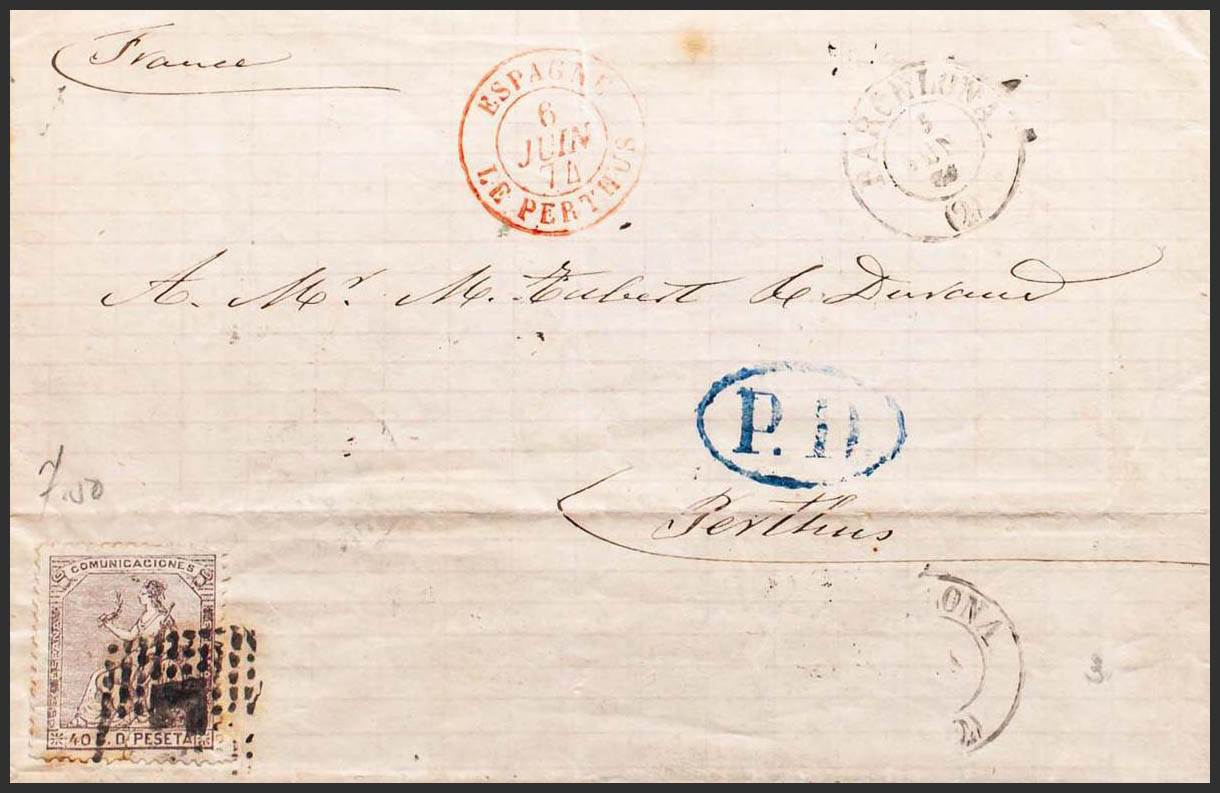 France
ESPAGNE
6
JUIN
74
LE PERTHUS
BARCELONA
5
JUN
(2)
A. Mr. M. Hubert de Durand
P.D.
Perthus
7.50
COMUNICACIONES
ESPAÑA
40 C. D. PESETA
ONA
(2)
3